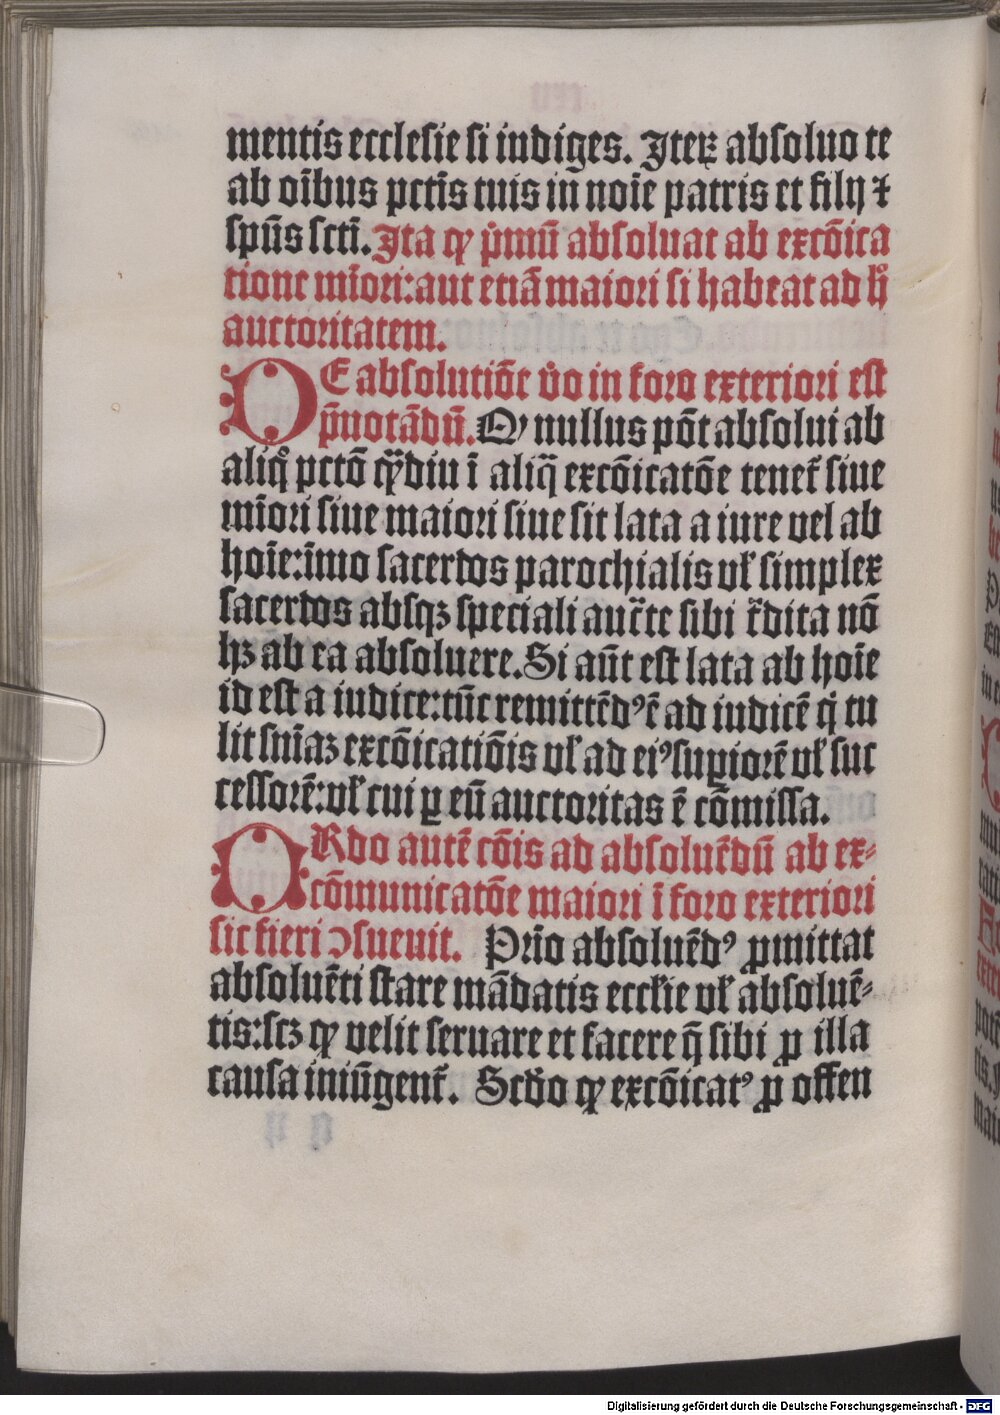 mentis ecclesie si indiges. Iteꝝ absoluo te
ab oībus pctīs tuis in noīe patris et filij ⁊
spūs sctī. Ita ꝙ pͥmū absoluat ab excōica
tione mīori: aut etiā maiori si habeat ad hͦ
auctoritatem.
DE absolutiōe v̓o in foro exteriori est
p̄notādū. Ꝙ nullus pōt absolui ab
aliqͦ pctō qͣ̄diu ī aliq̄ excōicatōe tenet̄ siue
mīori siue maiori siue sit lata a iure vel ab
hoīe: īmo sacerdos parochialis vł simplex
sacerdos absqꝫ speciali auc̄te sibi t̄dita nō
hꝫ ab ea absoluere. Si aūt est lata ab hoīe
id est a iudice: tūc remittēdꝰ ē ad iudicē q̇ tu
lit snīaꝫ excōicatiōis vł ad eiꝰ supiorē vł suc
cessorē: vł cui ꝑ eū auctoritas ē cōmissa.
ORdo autē cōis ad absoluēdū ab ex⸗
cōmunicatōe maiori ī foro exteriori
sic fieri ↄsueuit. Prīo absoluēdꝰ ꝓmittat
absoluēti stare mādatis eccłie vł absoluē⸗
tis: scꝫ ꝙ velit seruare et facere q̄ sibi ꝓ illa
causa iniūgent̄. Scd̄o ꝙ excōicatꝰ ꝓ offen
Digitalisierung gefördert durch die Deutsche Forschungsgemeinschaft - DFG